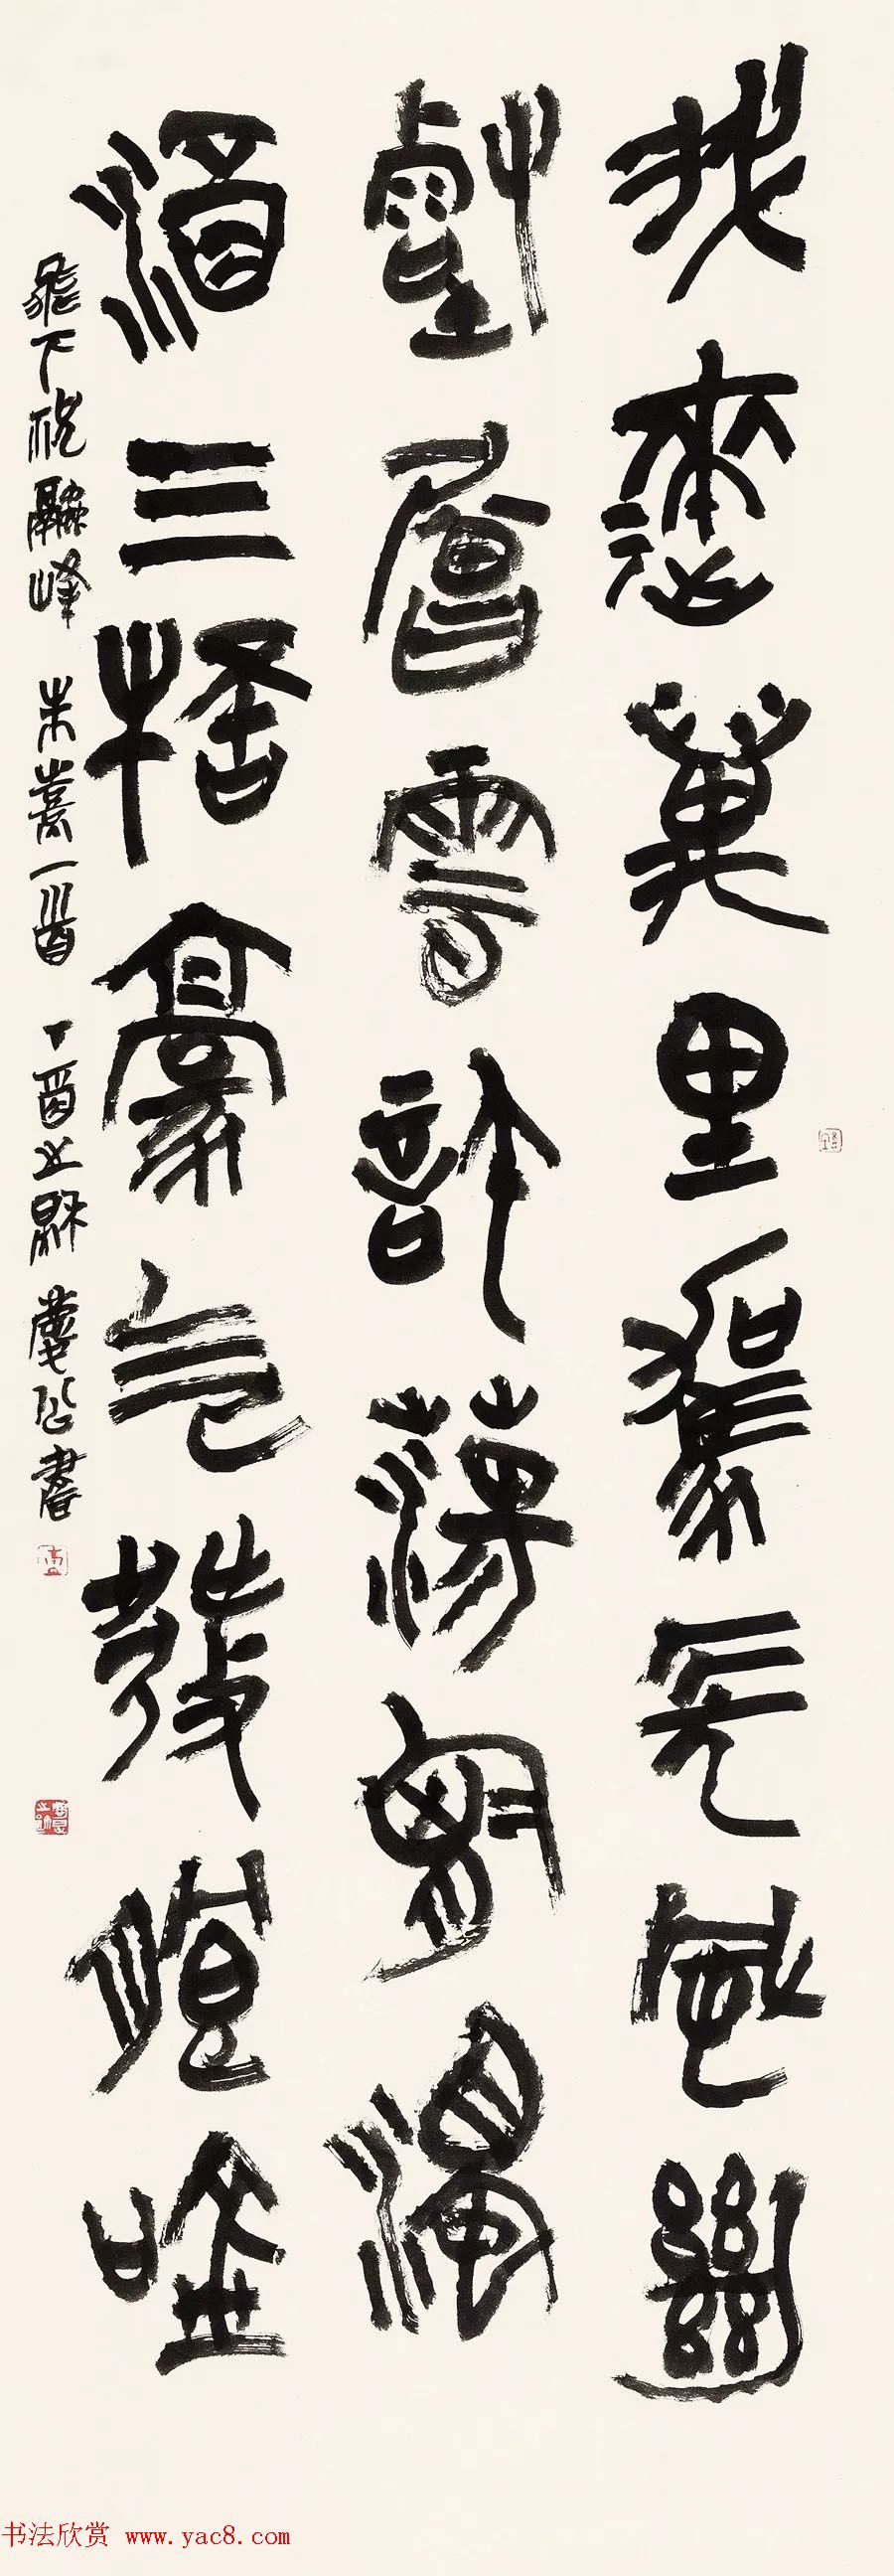 我來萬里駕長風絕
壑層雲許盪胷濁
酒三桮豪气發朗唫
飛下祝融峰 朱熹一首 丁酉之 書
书法欣赏 www.yac8.com